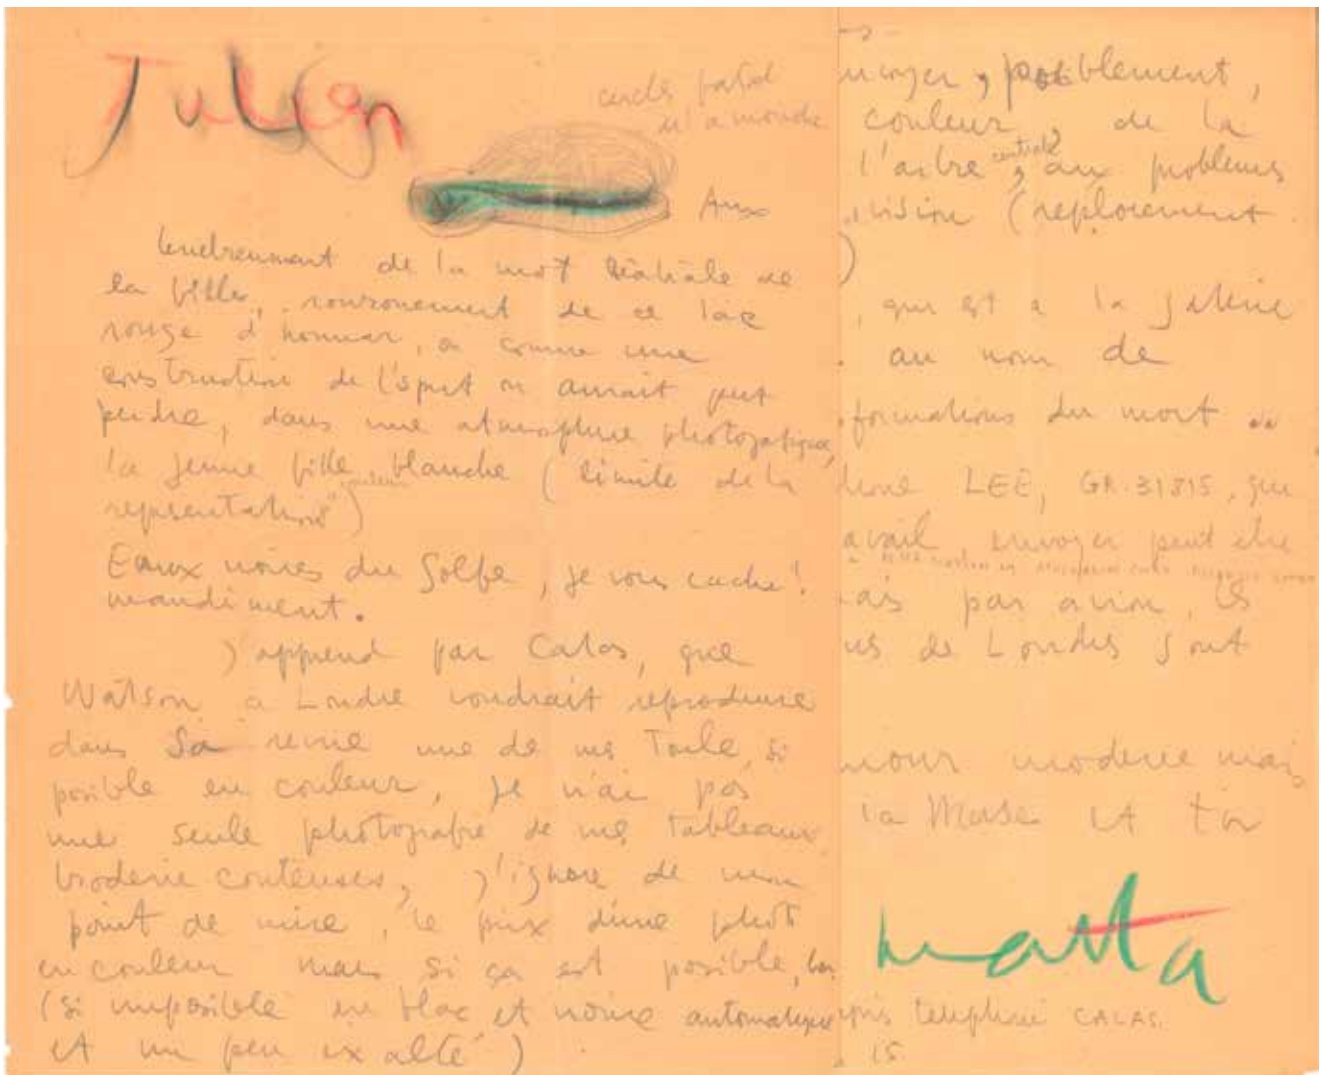 Julien
cercle
Aux
de la mort de
la fille, de ce lac
rouge d'honneur, comme une
construction de l'sprit on aurait put
perdre, dans une atmosphere photografique,
la jeune fille blanche (limite de la
representations)
Eaux noires du Golfe, je vous cache!
J'apprend par Calas, que
Watson a Londre voudrait reproduire
dans sa revue une de mes Toile, si
posible en couleur, je n'ai pas
une seule photografie de mes tableaux
broderie conteuses, j'ignore de mon
point de mire, le prix d'une phot
en couleur mais si ça est posible,
(si imposible en blac et noire automatique
et un peu ex alté)
nvoyer, posiblement,
couleur, de la
l'arbre central, aux problems
vision (reploiement
)
, qui est a la Galerie
au nom de
sformations du mort
LEE, GR.31815, que
avail envoyer peut etre
ais par avion, les
us de Londres sont
mour moderne mais
la Muse et toi
matta
telephone CALAS.
15